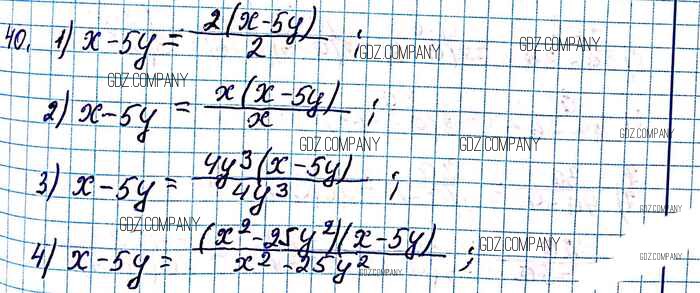 40. 1) x - 5y = 2(x - 5y) / 2 ;
GDZ.COMPANY GDZ.COMPANY
GDZ.COMPANY
2) x - 5y = x(x - 5y) / x ;
GDZ.COMPANY GDZ.COMPANY GDZ.COMPANY
3) x - 5y = 4y³(x - 5y) / 4y³ ;
GDZ.COMPANY
GDZ.COMPANY GDZ.COMPANY
4) x - 5y = (x² - 25y²)(x - 5y) / x² - 25y² ;
GDZ.COMPANY GDZ.COMPANY